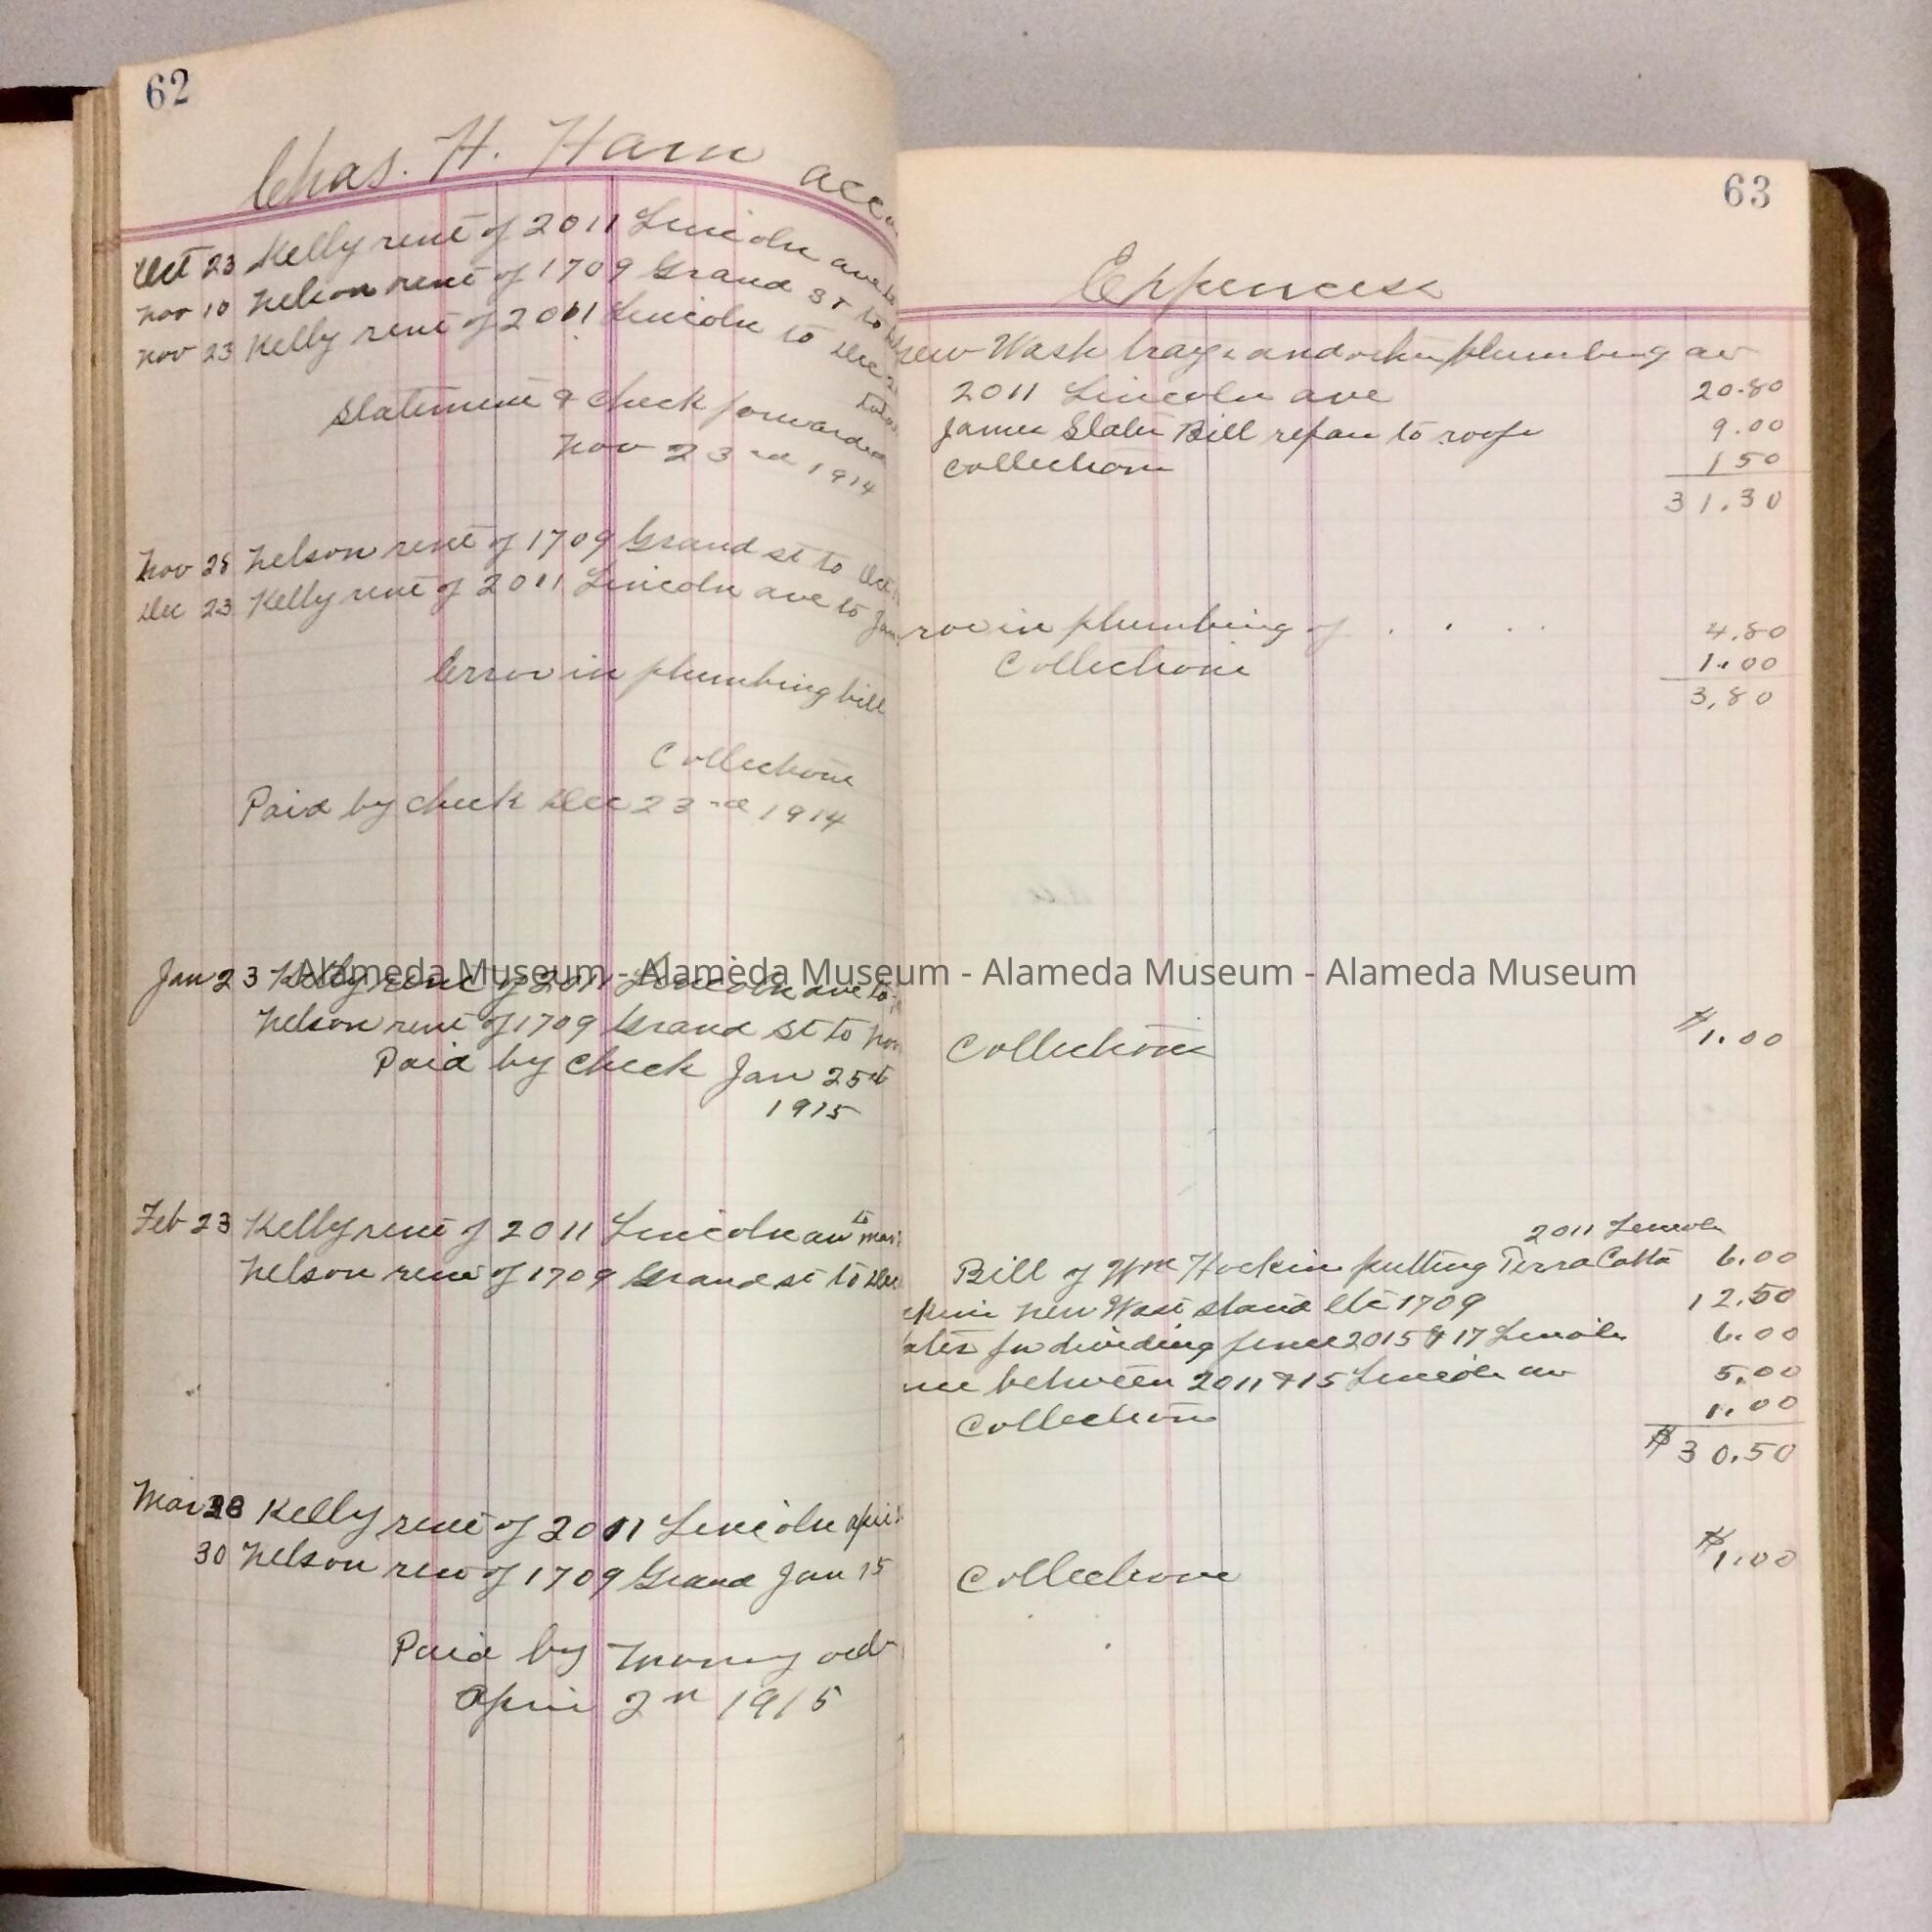 62
Chas. H. Ham acco
Oct 23 Kelly rent of 2011 Lincoln ave to
Nov 10 Nelson rent of 1709 Grand St to
Nov 23 Kelly rent of 2011 Lincoln to Dec 2
total
Statement & check forwarded
Nov 23rd 1914
Nov 28 Nelson rent of 1709 Grand st to Oct
Dec 23 Kelly rent of 2011 Lincoln ave to Jan
Error in plumbing bill
Collections
Paid by check Dec 23rd 1914
Jan 23 Kelly rent of 2011 Lincoln ave to
Nelson rent of 1709 Grand St to Nov
Paid by Check Jan 25th
1915
Feb 23 Kelly rent of 2011 Lincoln av to Mar
Nelson rent of 1709 Grand st to Dec
Mar 23 Kelly rent of 2011 Lincoln April
30 Nelson rent of 1709 Grand Jan 15
Paid by Money ordr
April 2n 1915
63
Expences
new Wash trays and other plumbing av
2011 Lincoln ave 20.80
James Slater Bill repair to roof 9.00
Collections 1 50
31.30
ror in plumbing of . . . . 4.80
Collections 1.00
3,80
Collections $1.00
2011 Lincoln
Bill of Wm Hockin putting Terra Cotta 6.00
ckin new Wast stand etc 1709 12.50
ater for dividing fence 2015 & 17 Lincoln 6.00
nce between 2011 & 15 Lincoln av 5.00
Collections 1.00
$30.50
Collections $1.00
Alameda Museum - Alameda Museum - Alameda Museum - Alameda Museum